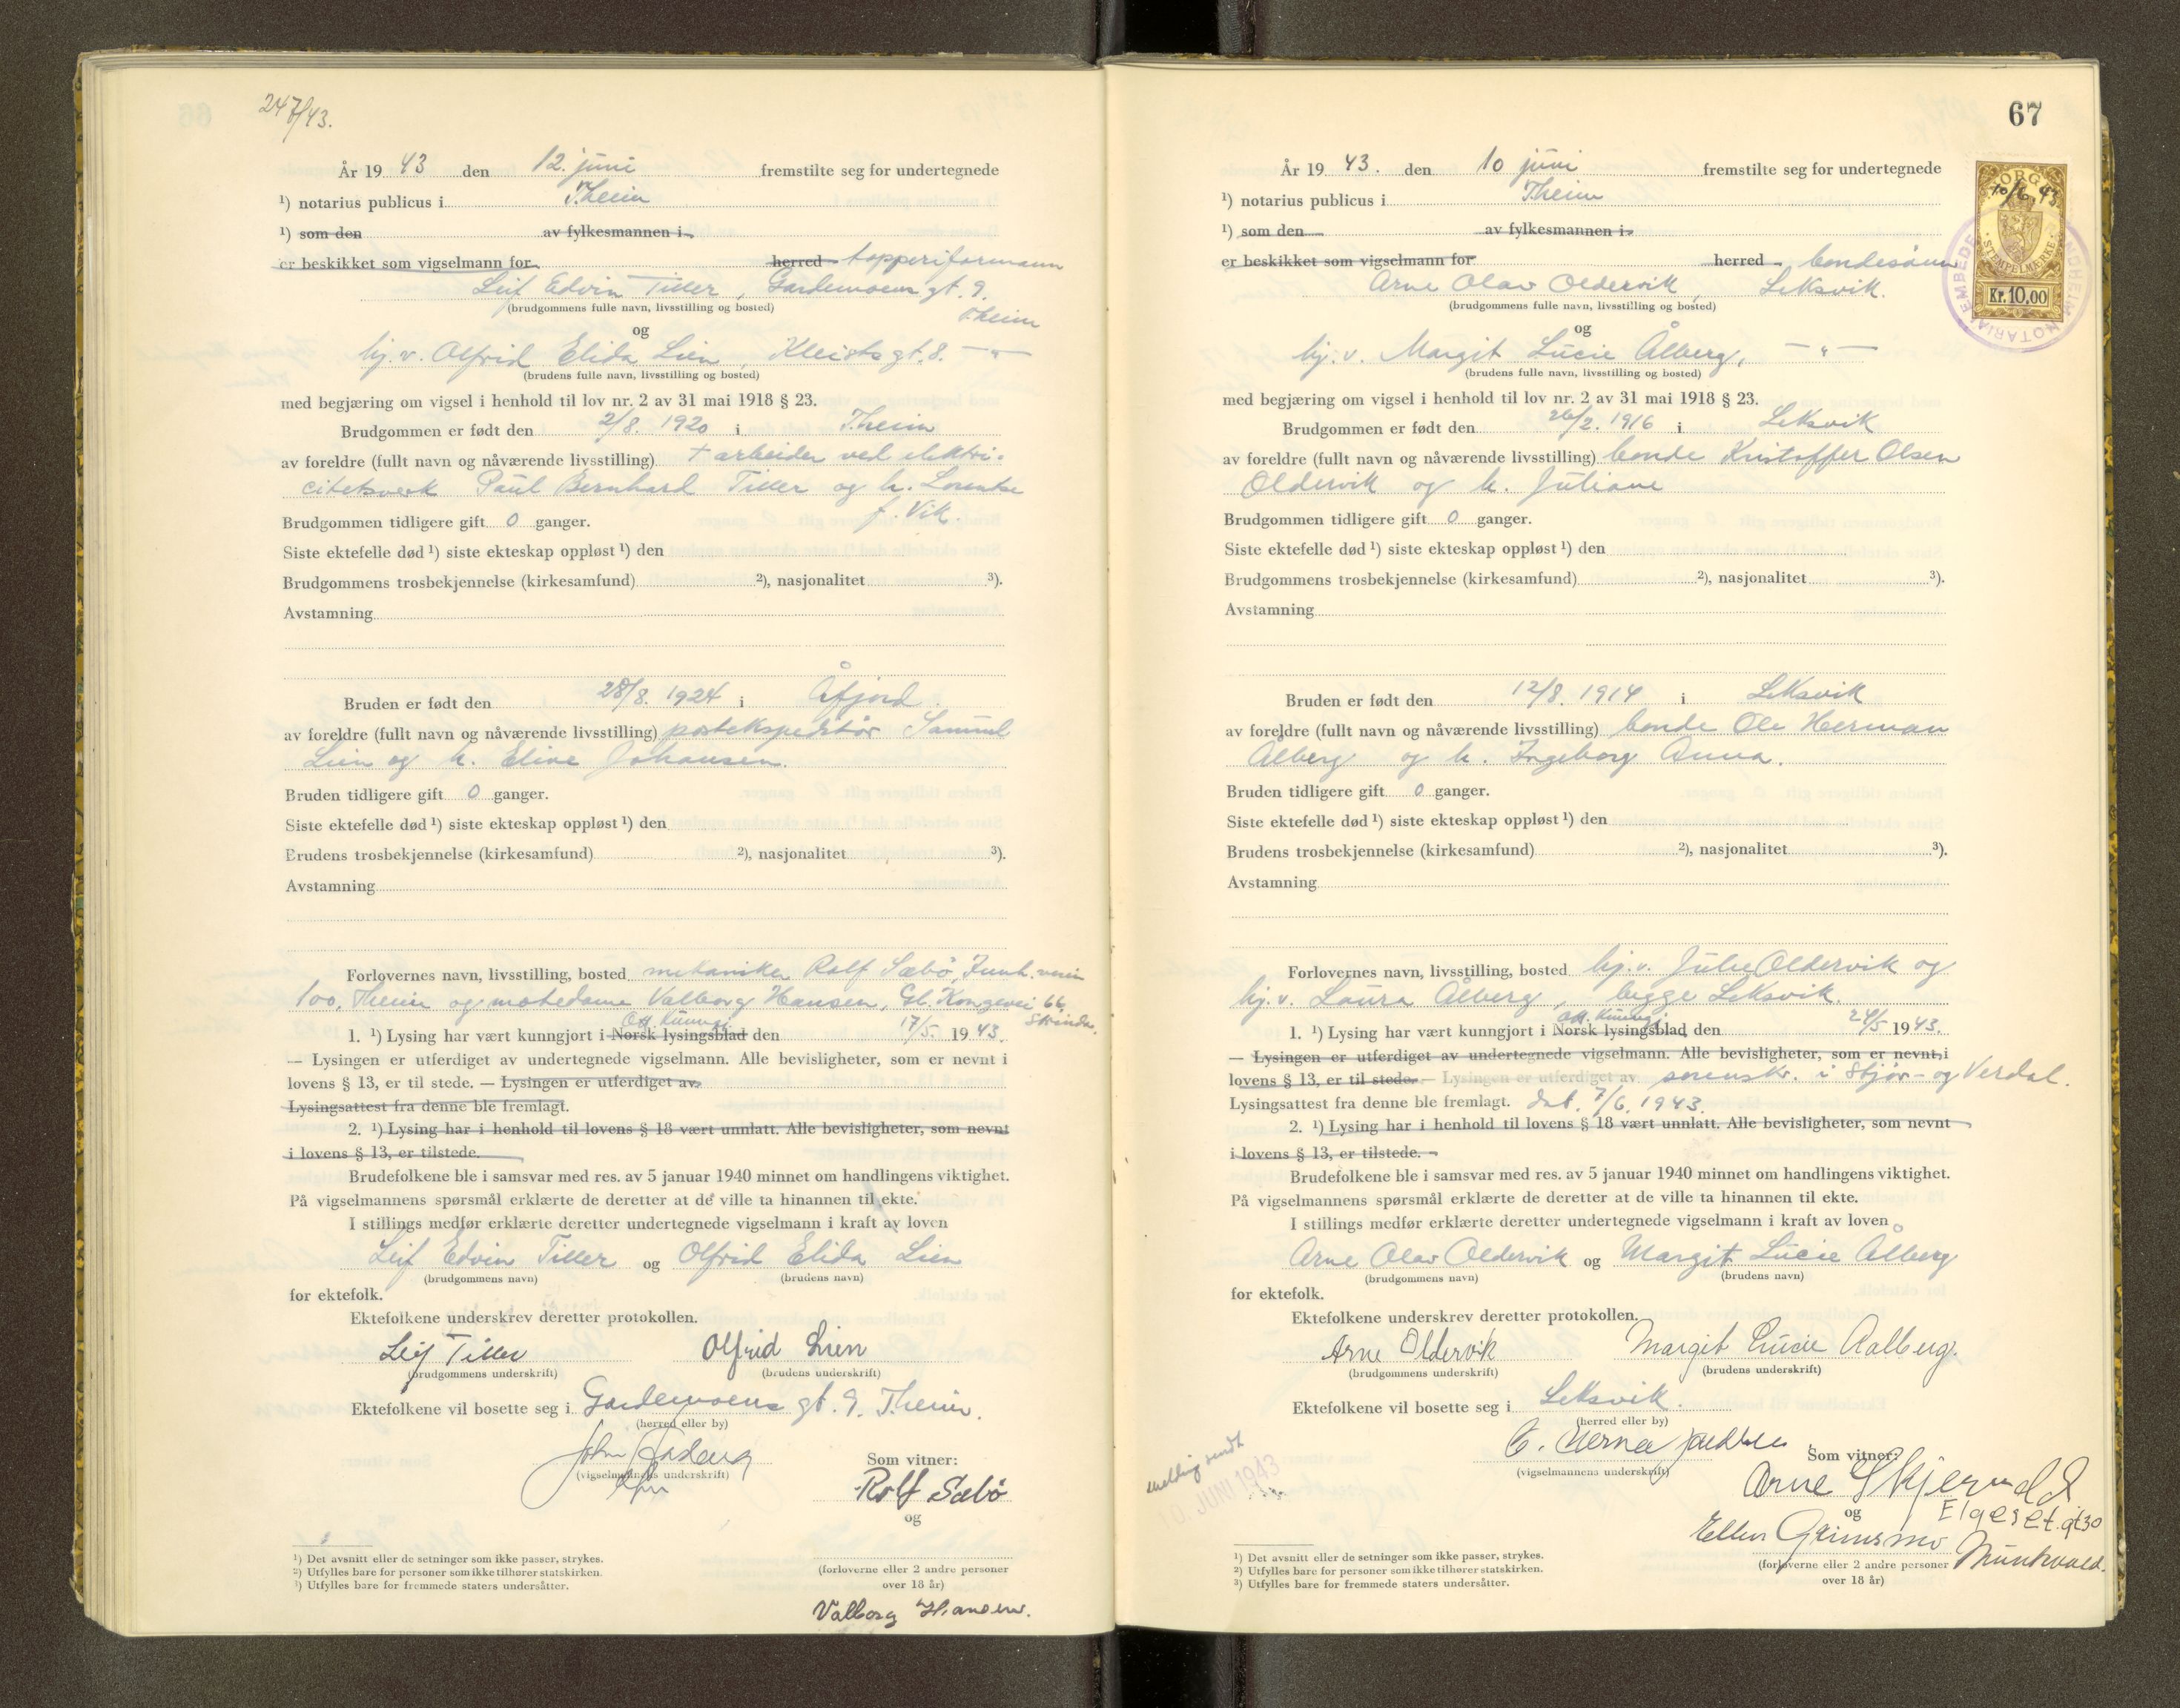 247/43.
År 19 43 den 12. juni fremstilte seg for undertegnede
¹) notarius publicus i T.heim
¹) som den av fylkesmannen i
er beskikket som vigselmann for herred tapperiformann
Leif Edvin Tiller, Gardemoens gt. 9.
(brudgommens fulle navn, livsstilling og bosted) T.heim
og
hj. v. Olfrid Elida Lien, Kleists gt. 8. — " —
(brudens fulle navn, livsstilling og bosted)
med begjæring om vigsel i henhold til lov nr. 2 av 31 mai 1918 § 23.
Brudgommen er født den 2/8. 1920 i T.heim
av foreldre (fullt navn og nåværende livsstilling) + arbeider ved elektri-
citetsverk Paul Bernhard Tiller og h. Lorentse
f. Vik
Brudgommen tidligere gift 0 ganger.
Siste ektefelle død ¹) siste ekteskap oppløst ¹) den
Brudgommens trosbekjennelse (kirkesamfund) ²), nasjonalitet ³).
Avstamning
Bruden er født den 28/8. 1924 i Åfjord.
av foreldre (fullt navn og nåværende livsstilling) postekspeditør Samuel
Lien og h. Eline Johansen.
Bruden tidligere gift 0 ganger.
Siste ektefelle død ¹) siste ekteskap oppløst ¹) den
Brudens trosbekjennelse (kirkesamfund) ²), nasjonalitet ³).
Avstamning
Forlovernes navn, livsstilling, bosted mekaniker Rolf Sæbö, Jernb. veien
100, T.heim og motedame Valborg Hansen, Gl. Kongevei 66,
Strinda.
Off. Kunngj.
1. ¹) Lysing har vært kunngjort i Norsk lysingsblad den 17/5. 19 43.
— Lysingen er utferdiget av undertegnede vigselmann. Alle bevisligheter, som er nevnt i
lovens § 13, er til stede. — Lysingen er utferdiget av
Lysingsattest fra denne ble fremlagt.
2. ¹) Lysing har i henhold til lovens § 18 vært unnlatt. Alle bevisligheter, som nevnt
i lovens § 13, er tilstede.
Brudefolkene ble i samsvar med res. av 5 januar 1940 minnet om handlingens viktighet.
På vigselmannens spørsmål erklærte de deretter at de ville ta hinannen til ekte.
I stillings medfør erklærte deretter undertegnede vigselmann i kraft av loven
Leif Edvin Tiller og Olfrid Elida Lien
(brudgommens navn) (brudens navn)
for ektefolk.
Ektefolkene underskrev deretter protokollen.
Leif Tiller Olfrid Lien
(brudgommens underskrift) (brudens underskrift)
Ektefolkene vil bosette seg i Gardemoens gt. 9. T.heim.
(herred eller by)
John
(vigselmannens underskrift) Som vitner:
Rolf Sæbö
og
¹) Det avsnitt eller de setninger som ikke passer, strykes.
²) Utfylles bare for personer som ikke tilhører statskirken.
³) Utfylles bare for fremmede staters undersåtter.
(forloverne eller 2 andre personer
over 18 år)
Valborg Hansen.
67
År 19 43. den 10 juni fremstilte seg for undertegnede
¹) notarius publicus i T.heim
¹) som den av fylkesmannen i
er beskikket som vigselmann for herred bondesønn
Arne Olav Oldervik, Leksvik.
(brudgommens fulle navn, livsstilling og bosted)
og
hj. v. Margit Lucie Ålberg, — " —
(brudens fulle navn, livsstilling og bosted)
NORGE
10/6. 43.
STEMPELMERKE
Kr. 10,00
med begjæring om vigsel i henhold til lov nr. 2 av 31 mai 1918 § 23.
Brudgommen er født den 26/2. 1916 i Leksvik
av foreldre (fullt navn og nåværende livsstilling) bonde Kristoffer Olsen
Oldervik og h. Juliane
Brudgommen tidligere gift 0 ganger.
Siste ektefelle død ¹) siste ekteskap oppløst ¹) den
Brudgommens trosbekjennelse (kirkesamfund) ²), nasjonalitet ³).
Avstamning
Bruden er født den 12/8. 1914 i Leksvik
av foreldre (fullt navn og nåværende livsstilling) bonde Ole Herman
Ålberg og h. Ingeborg Anna.
Bruden tidligere gift 0 ganger.
Siste ektefelle død ¹) siste ekteskap oppløst ¹) den
Brudens trosbekjennelse (kirkesamfund) ²), nasjonalitet ³).
Avstamning
Forlovernes navn, livsstilling, bosted hj. v. Julie Oldervik og
hj. v. Laura Ålberg, begge Leksvik.
Off. Kunngj.
1. ¹) Lysing har vært kunngjort i Norsk lysingsblad den 24/5 19 43.
— Lysingen er utferdiget av undertegnede vigselmann. Alle bevisligheter, som er nevnt i
lovens § 13, er til stede. — Lysingen er utferdiget av sorenskr. i Stjør- og Verdal.
Lysingsattest fra denne ble fremlagt. dat. 7/6. 1943.
2. ¹) Lysing har i henhold til lovens § 18 vært unnlatt. Alle bevisligheter, som nevnt
i lovens § 13, er tilstede.
Brudefolkene ble i samsvar med res. av 5 januar 1940 minnet om handlingens viktighet.
På vigselmannens spørsmål erklærte de deretter at de ville ta hinannen til ekte.
I stillings medfør erklærte deretter undertegnede vigselmann i kraft av loven
Arne Olav Oldervik og Margit Lucie Ålberg
(brudgommens navn) (brudens navn)
for ektefolk.
Ektefolkene underskrev deretter protokollen.
Arne Oldervik Margit Lucie Aalberg.
(brudgommens underskrift) (brudens underskrift)
Ektefolkene vil bosette seg i Leksvik.
(herred eller by)
(vigselmannens underskrift) Som vitner:
melding sendt
10 JUNI 1943
Arne Skjervold
og Elgeset. gt 30
Ellen Grimsmo Munkvold.
(forloverne eller 2 andre personer
over 18 år)
¹) Det avsnitt eller de setninger som ikke passer, strykes.
²) Utfylles bare for personer som ikke tilhører statskirken.
³) Utfylles bare for fremmede staters undersåtter.